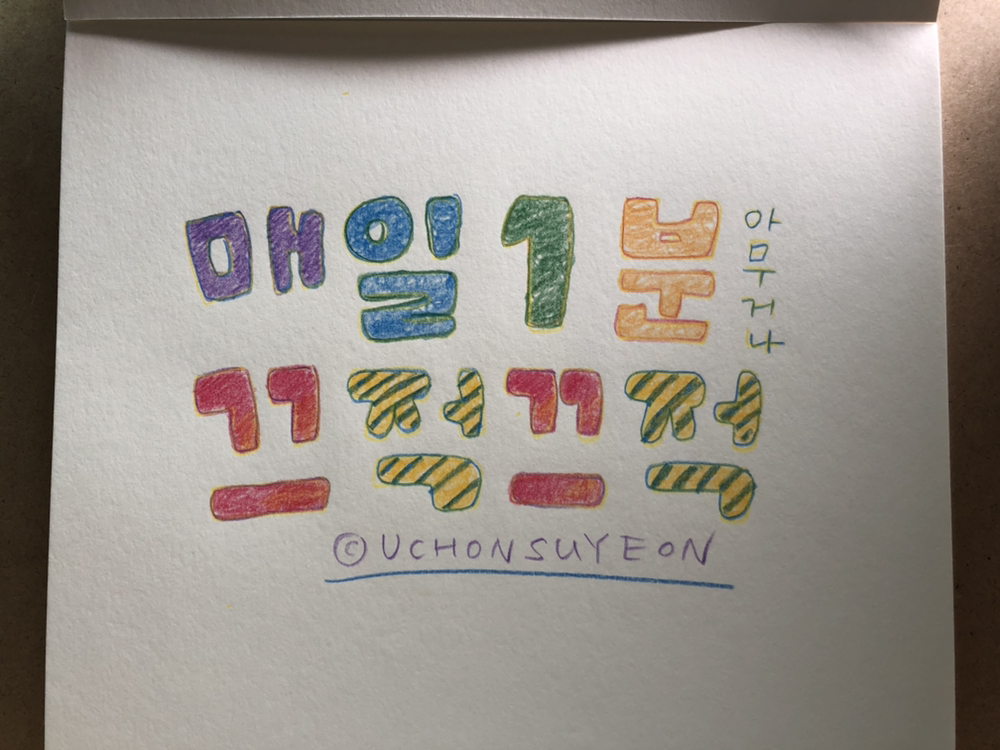 매일 1분
아무거나
끄적끄적
©UCHONSUYEON